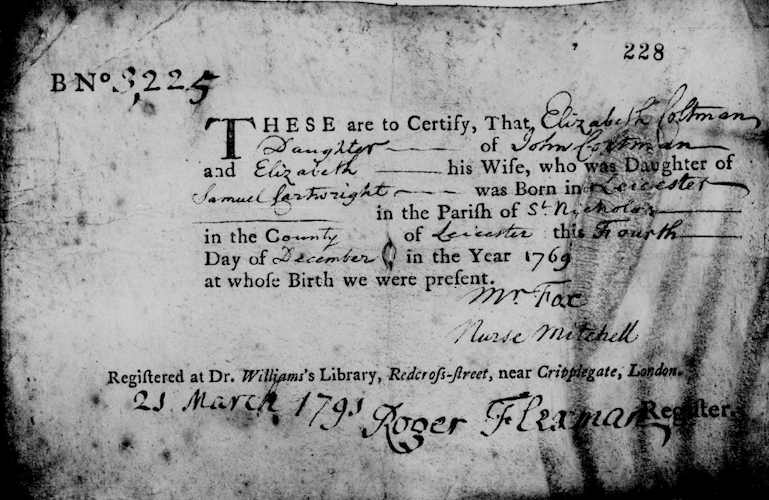 228
B Nº 3,225
THESE are to Certify, That Elizabeth Coltman
Daughter of John Coltman
and Elizabeth his Wife, who was Daughter of
Samuel Cartwright was Born in Leicester
in the Pariſh of St. Nicholas
in the County of Leicester this Fourth
Day of December in the Year 1769
at whoſe Birth we were preſent.
Mr. Fox
Nurse Mitchell
Regiſtered at Dr. Williams's Library, Redcroſs-ſtreet, near Cripplegate, London.
21 March 1791
Roger Flexman Regiſter.